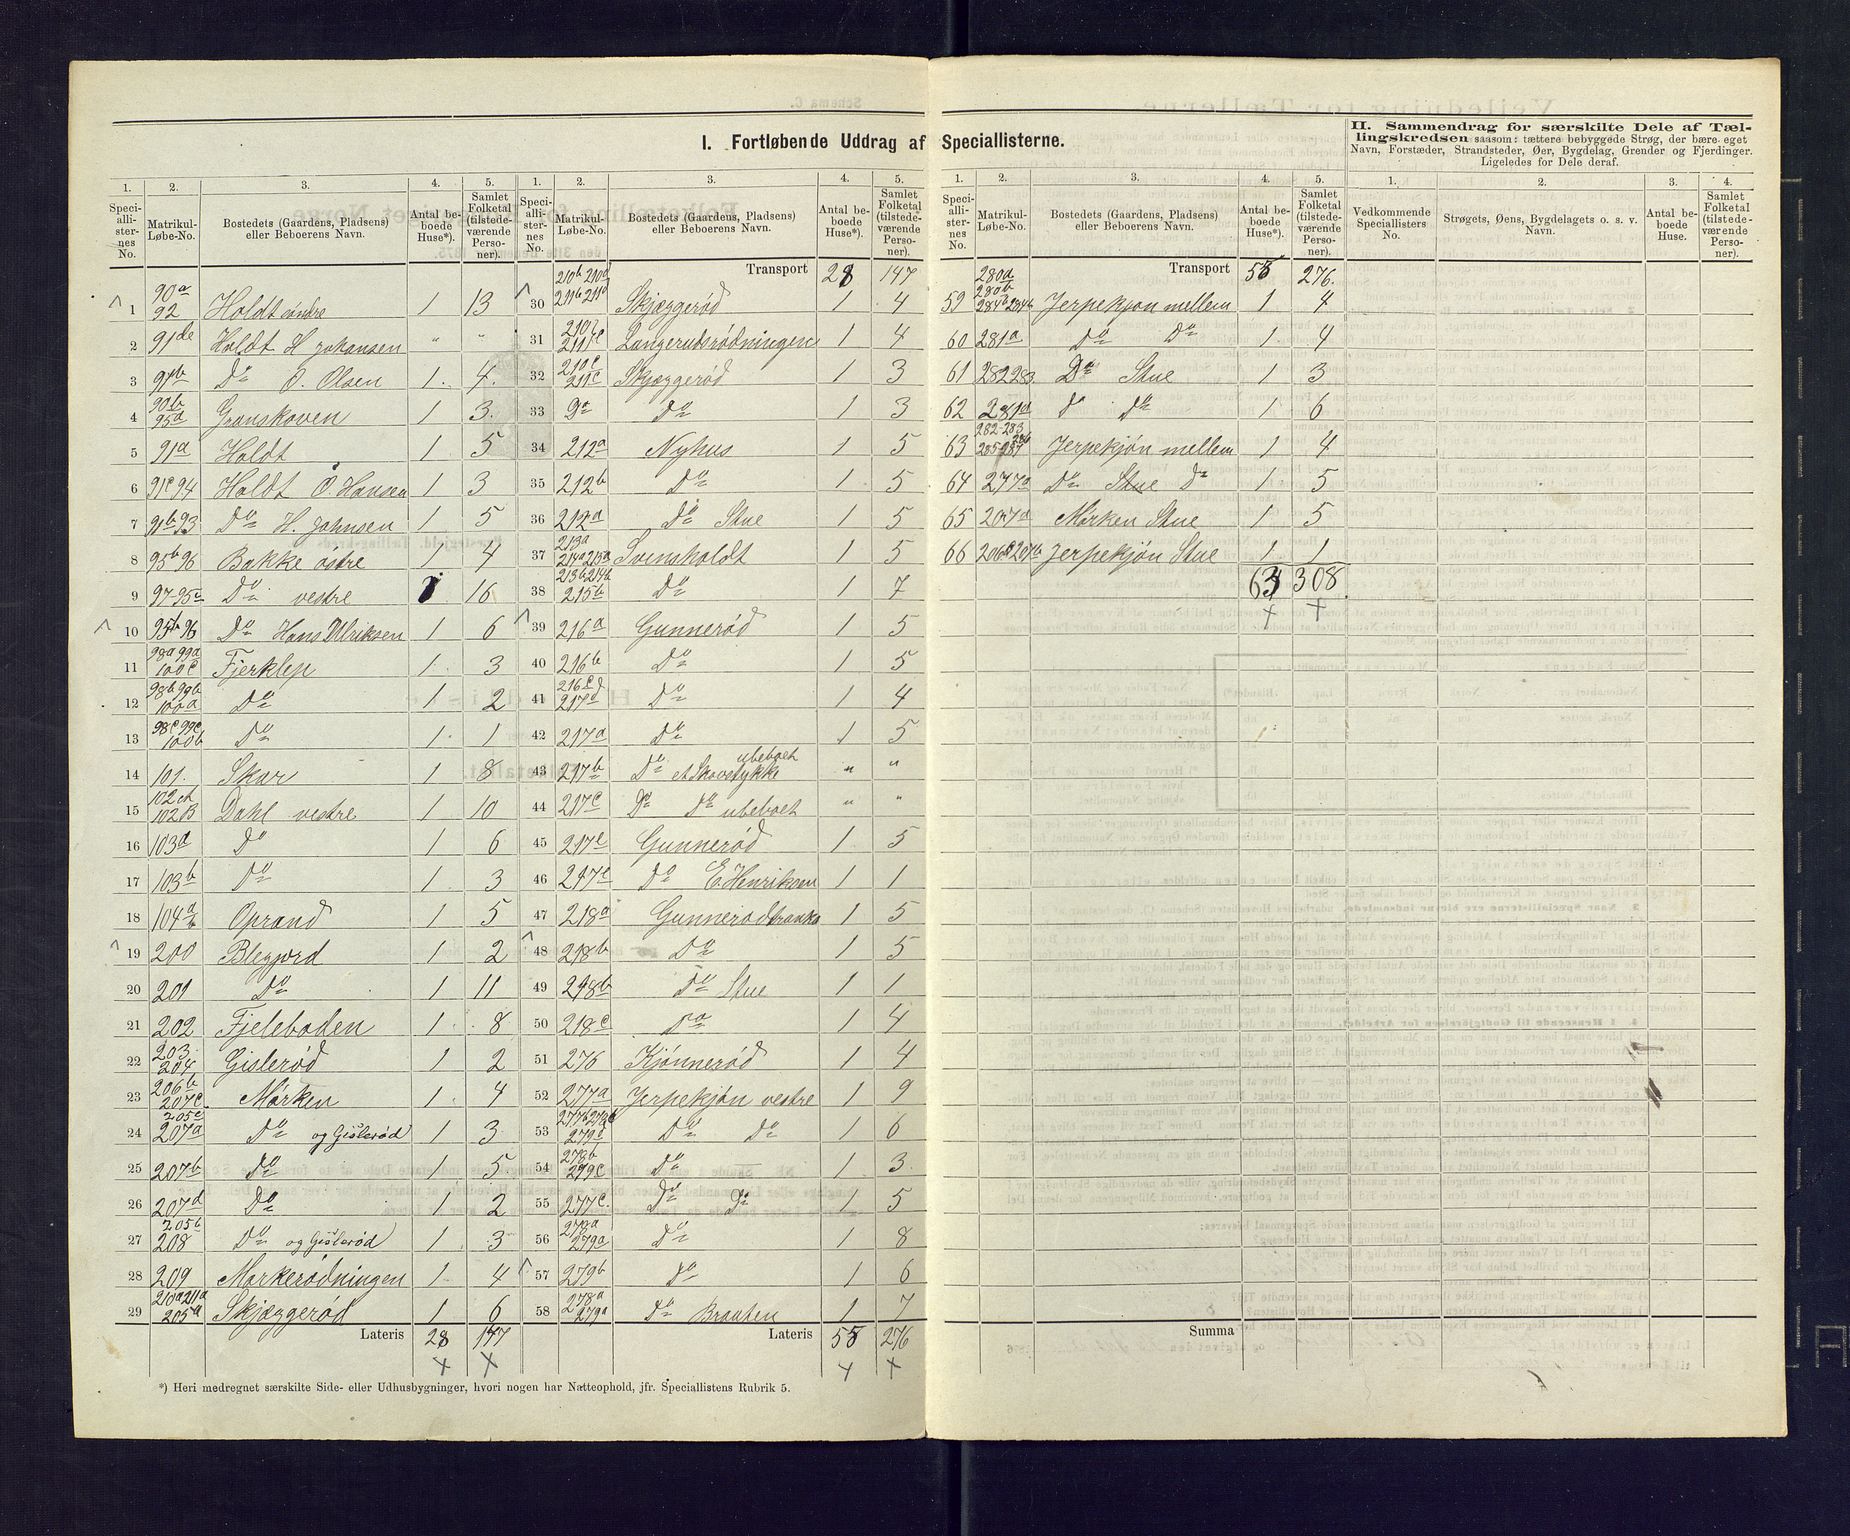 I. Fortløbende Uddrag af Speciallisterne.
II. Sammendrag for særskilte Dele af Tællingskredsen saasom: tættere bebyggede Strøg, der bære eget
Navn, Forstæder, Strandsteder, Øer, Bygdelag, Grender og Fjerdinger.
Ligeledes for Dele deraf.
1. 2. 3. 4. 5.
Speciallisternes No. Matrikul-Løbe-No. Bostedets (Gaardens, Pladsens) eller Beboerens Navn. Antal beboede Huse*). Samlet Folketal (tilstedeværende Personer).
1 90a 92 Holdt øndre 1 13
2 91de Holdt H Johansen " "
3 91b Do O. Olsen 1 4
4 90b 95a Granskoven 1 3
5 91a Holdt 1 5
6 91c 94 Holdt O Hansen 1 3
7 91b 93 Do H. Johnsen 1 5
8 95b 96 Bakke østre 1 4
9 97-95c Do vestre 1 16
10 95b 96 Do Hans Ulriksen 1 6
11 98a 99a 100c Fjerklep 1 3
12 98b 99b 100a Do 1 2
13 98c 99c 100b Do 1 1
14 101. Skar 1 8
15 102A 102B Dahl vestre 1 10
16 103a Do 1 6
17 103b Do 1 3
18 104a b Oprand 1 5
19 200 Blegjord 1 2
20 201 Do 1 11
21 202 Fjeleboden 1 8
22 203 204 Gislerød 1 2
23 206b 207c Mørken 1 4
24 205c 207a Do og Gislerød 1 3
25 207b Do 1 5
26 207d Do 1 2
27 205b 208 Do og Gislerød 1 3
28 209 Mørkerødningen 1 4
29 210a 211a 205a Skjæggerød 1 6
Lateris 28 147
1. 2. 3. 4. 5.
Speciallisternes No. Matrikul-Løbe-No. Bostedets (Gaardens, Pladsens) eller Beboerens Navn. Antal beboede Huse*). Samlet Folketal (tilstedeværende Personer).
Transport 28 147
30 210b 210d 211b 211d Skjæggerød 1 4
31 Langerudsrødningen 1 4
32 210c 211c Skjæggerød 1 3
33 Do Do 1 3
34 212a Nyhus 1 5
35 212b Do 1 5
36 212a Do Stue 1 5
37 213a 214a 215a Svinsholdt 1 5
38 213b 214b 215b Do 1 7
39 216a Gunnerød 1 5
40 216b Do 1 5
41 216c 217d Do 1 4
42 217a Do 1 5
43 217b Do et Skovstykke ubeboet " "
44 217c Do Do ubeboet " "
45 217e Gunnerød 1 5
46 217e Do E. Henriksen 1 1
47 218a Gunnerødbraaten 1 5
48 218b Do 1 5
49 218b Do Stue 1 1
50 218c Do 1 4
51 276 Kjønnerød 1 4
52 277a Jerpekjøn vestre 1 9
53 Do Do 1 6
54 278b 279c Do 1 3
55 277c Do Do 1 5
56 279a Do 1 8
57 279b Do 1 6
58 278a 279a Do Braaten 1 7
Lateris 55 276
1. 2. 3. 4. 5.
Speciallisternes No. Matrikul-Løbe-No. Bostedets (Gaardens, Pladsens) eller Beboerens Navn. Antal beboede Huse*). Samlet Folketal (tilstedeværende Personer).
Transport 55 276.
59 280a 280b 284b Jerpekjøn mellem 1 4
60 281a Do Do 1 4
61 282 283 Do Stue 1 3
62 281a Do Do 1 6
63 282-283 Jerpekjøn mellem 1 4
64 277a Do Stue Do 1 5
65 207a Mørken Stue 1 5
66 Jerpekjøn Stue 1 1
63 308
Summa
1. 2. 3. 4.
Vedkommende Speciallisters No. Strøgets, Øens, Bygdelagets o. s. v. Navn. Antal beboede Huse. Samlet Folketal (tilstedeværende Personer).
*) Heri medregnet særskilte Side- eller Udhusbygninger, hvori nogen har Natteophold, jfr. Speciallistens Rubrik 5.